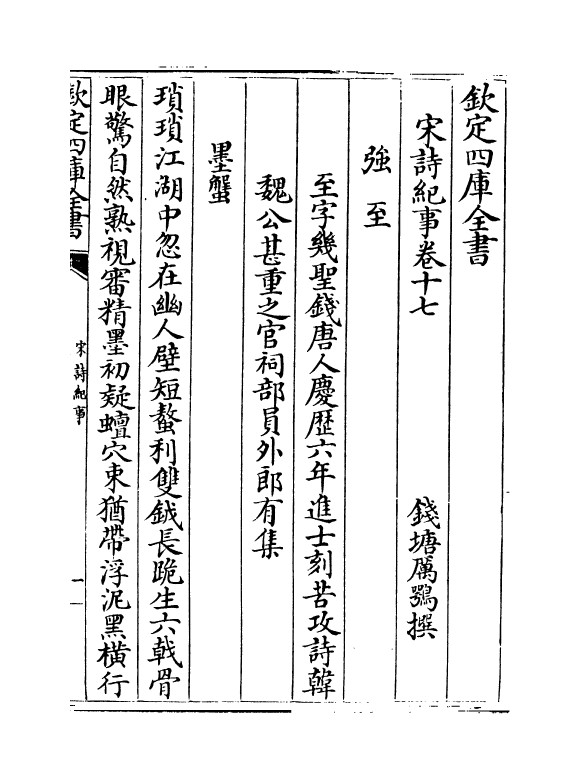 欽定四庫全書
宋詩紀事卷十七
錢塘厲鶚撰
強至
至字幾聖錢唐人慶歷六年進士刻苦攻詩韓
魏公甚重之官祠部員外郎有集
墨蟹
瑣瑣江湖中忽在幽人壁短螯利雙鉞長跪生六戟骨
眼驚自然熟視審精墨初疑蟺穴束猶帶浮泥黑橫行
欽定四庫全書
宋詩紀事
一